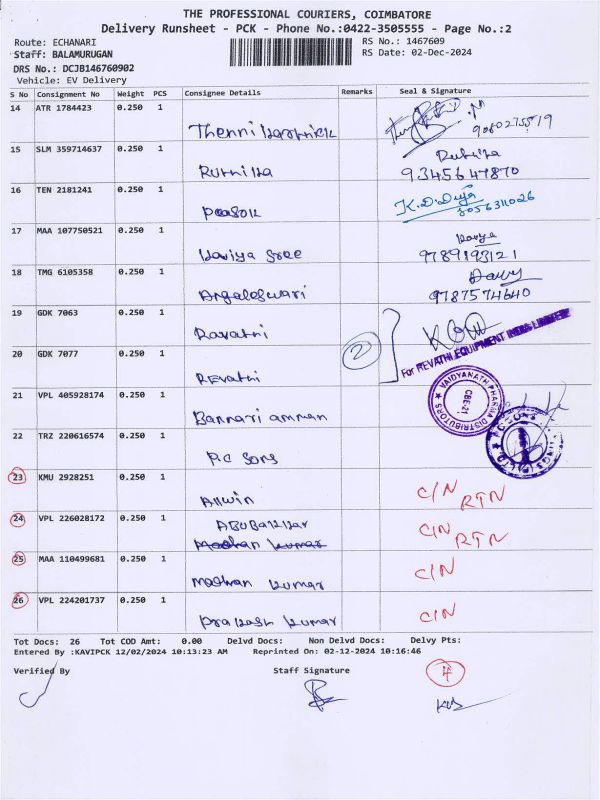 THE PROFESSIONAL COURIERS, COIMBATORE
Delivery Runsheet - PCK - Phone No.:0422-3505555 - Page No.:2
Route: ECHANARI
RS No.: 1467609
Staff: BALAMURUGAN
RS Date: 02-Dec-2024
DRS No.: DCJB146760902
Vehicle: EV Delivery
S No Consignment No Weight PCS Consignee Details Remarks Seal & Signature
14 ATR 1784423 0.250 1
Thenni Karthick 9080275519
15 SLM 359714637 0.250 1
Ruthika 9345647870
16 TEN 2181241 0.250 1
K.D.Divya
8056311026
17 MAA 107750521 0.250 1
Kaviya Sree Kavya
9789193121
18 TMG 6105358 0.250 1
Angaleswari
9787574640
19 GDK 7063 0.250 1
Ravathi
2
For REVATHI EQUIPMENT INDIA LIMITED
20 GDK 7077 0.250 1
Revathi
21 VPL 405928174 0.250 1
Bannari amman
VAIDYANATH PHARMA DISTRIBUTORS
CBE-21
22 TRZ 220616574 0.250 1
P.C Sons
23 KMU 2928251 0.250 1
Allwin C/N RTN
24 VPL 226028172 0.250 1
Abubakkar C/N RTN
Madhan kumar
25 MAA 110499681 0.250 1
Madhan kumar C/N
26 VPL 224201737 0.250 1
Prakash kumar C/N
Tot Docs: 26 Tot COD Amt: 0.00 Delvd Docs: Non Delvd Docs: Delvy Pts:
Entered By :KAVIPCK 12/02/2024 10:13:23 AM Reprinted On: 02-12-2024 10:16:46
Verified By Staff Signature